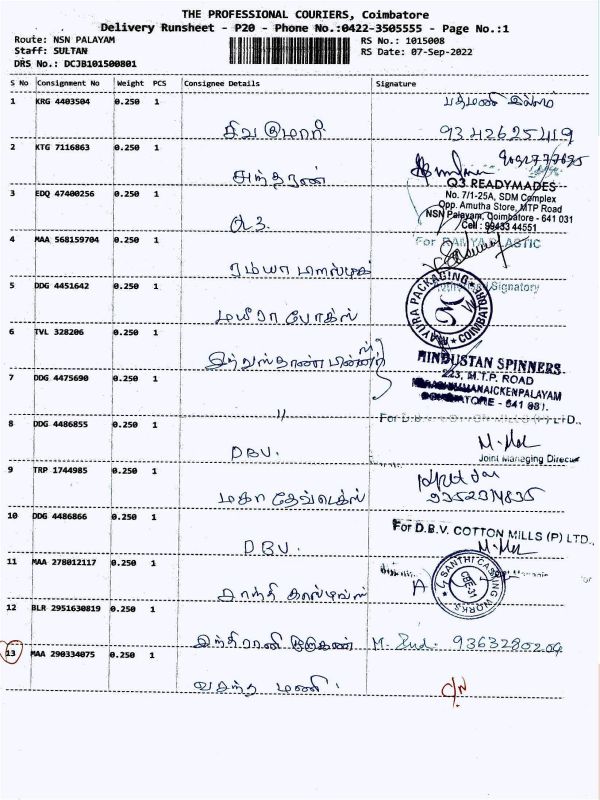 THE PROFESSIONAL COURIERS, Coimbatore
Delivery Runsheet - P20 - Phone No.:0422-3505555 - Page No.:1
Route: NSN PALAYAM
Staff: SULTAN
DRS No.: DCJB101500801
RS No.: 1015008
RS Date: 07-Sep-2022
S No Consignment No Weight PCS Consignee Details Signature
1 KRG 4403504 0.250 1
சிவ குமாரி
பத்மணி இல்லம்
9342625419
2 KTG 7116863 0.250 1
3 EDQ 47400256 0.250 1
Q3.
Q3 READYMADES
No. 7/1-25A, SDM Complex
Opp. Amutha Store, MTP Road
NSN Palayam, Coimbatore - 641 031
Cell : 99433 44551
4 MAA 568159704 0.250 1
ரம்யா பிளாஸ்டிக்
For RAMYA PLASTIC
Signatory
5 DDG 4451642 0.250 1
மயூரா பேக்ஸ்
MAYURA PACKAGING
COIMBATORE
6 TVL 328206 0.250 1
HINDUSTAN SPINNERS
223, M.T.P. ROAD
7 DDG 4475690 0.250 1
"
8 DDG 4486855 0.250 1
DBV.
For D.B.V. COTTON MILLS (P) LTD.,
Joint Managing Director
9 TRP 1744985 0.250 1
மகா தேவ்டெக்ஸ்
10 DDG 4486866 0.250 1
DBV.
For D.B.V. COTTON MILLS (P) LTD.,
11 MAA 278012117 0.250 1
SANTHI CASTING WORKS
CBE-31
12 BLR 2951630819 0.250 1
9363280204
13 MAA 290334075 0.250 1
வசந்த மணி.